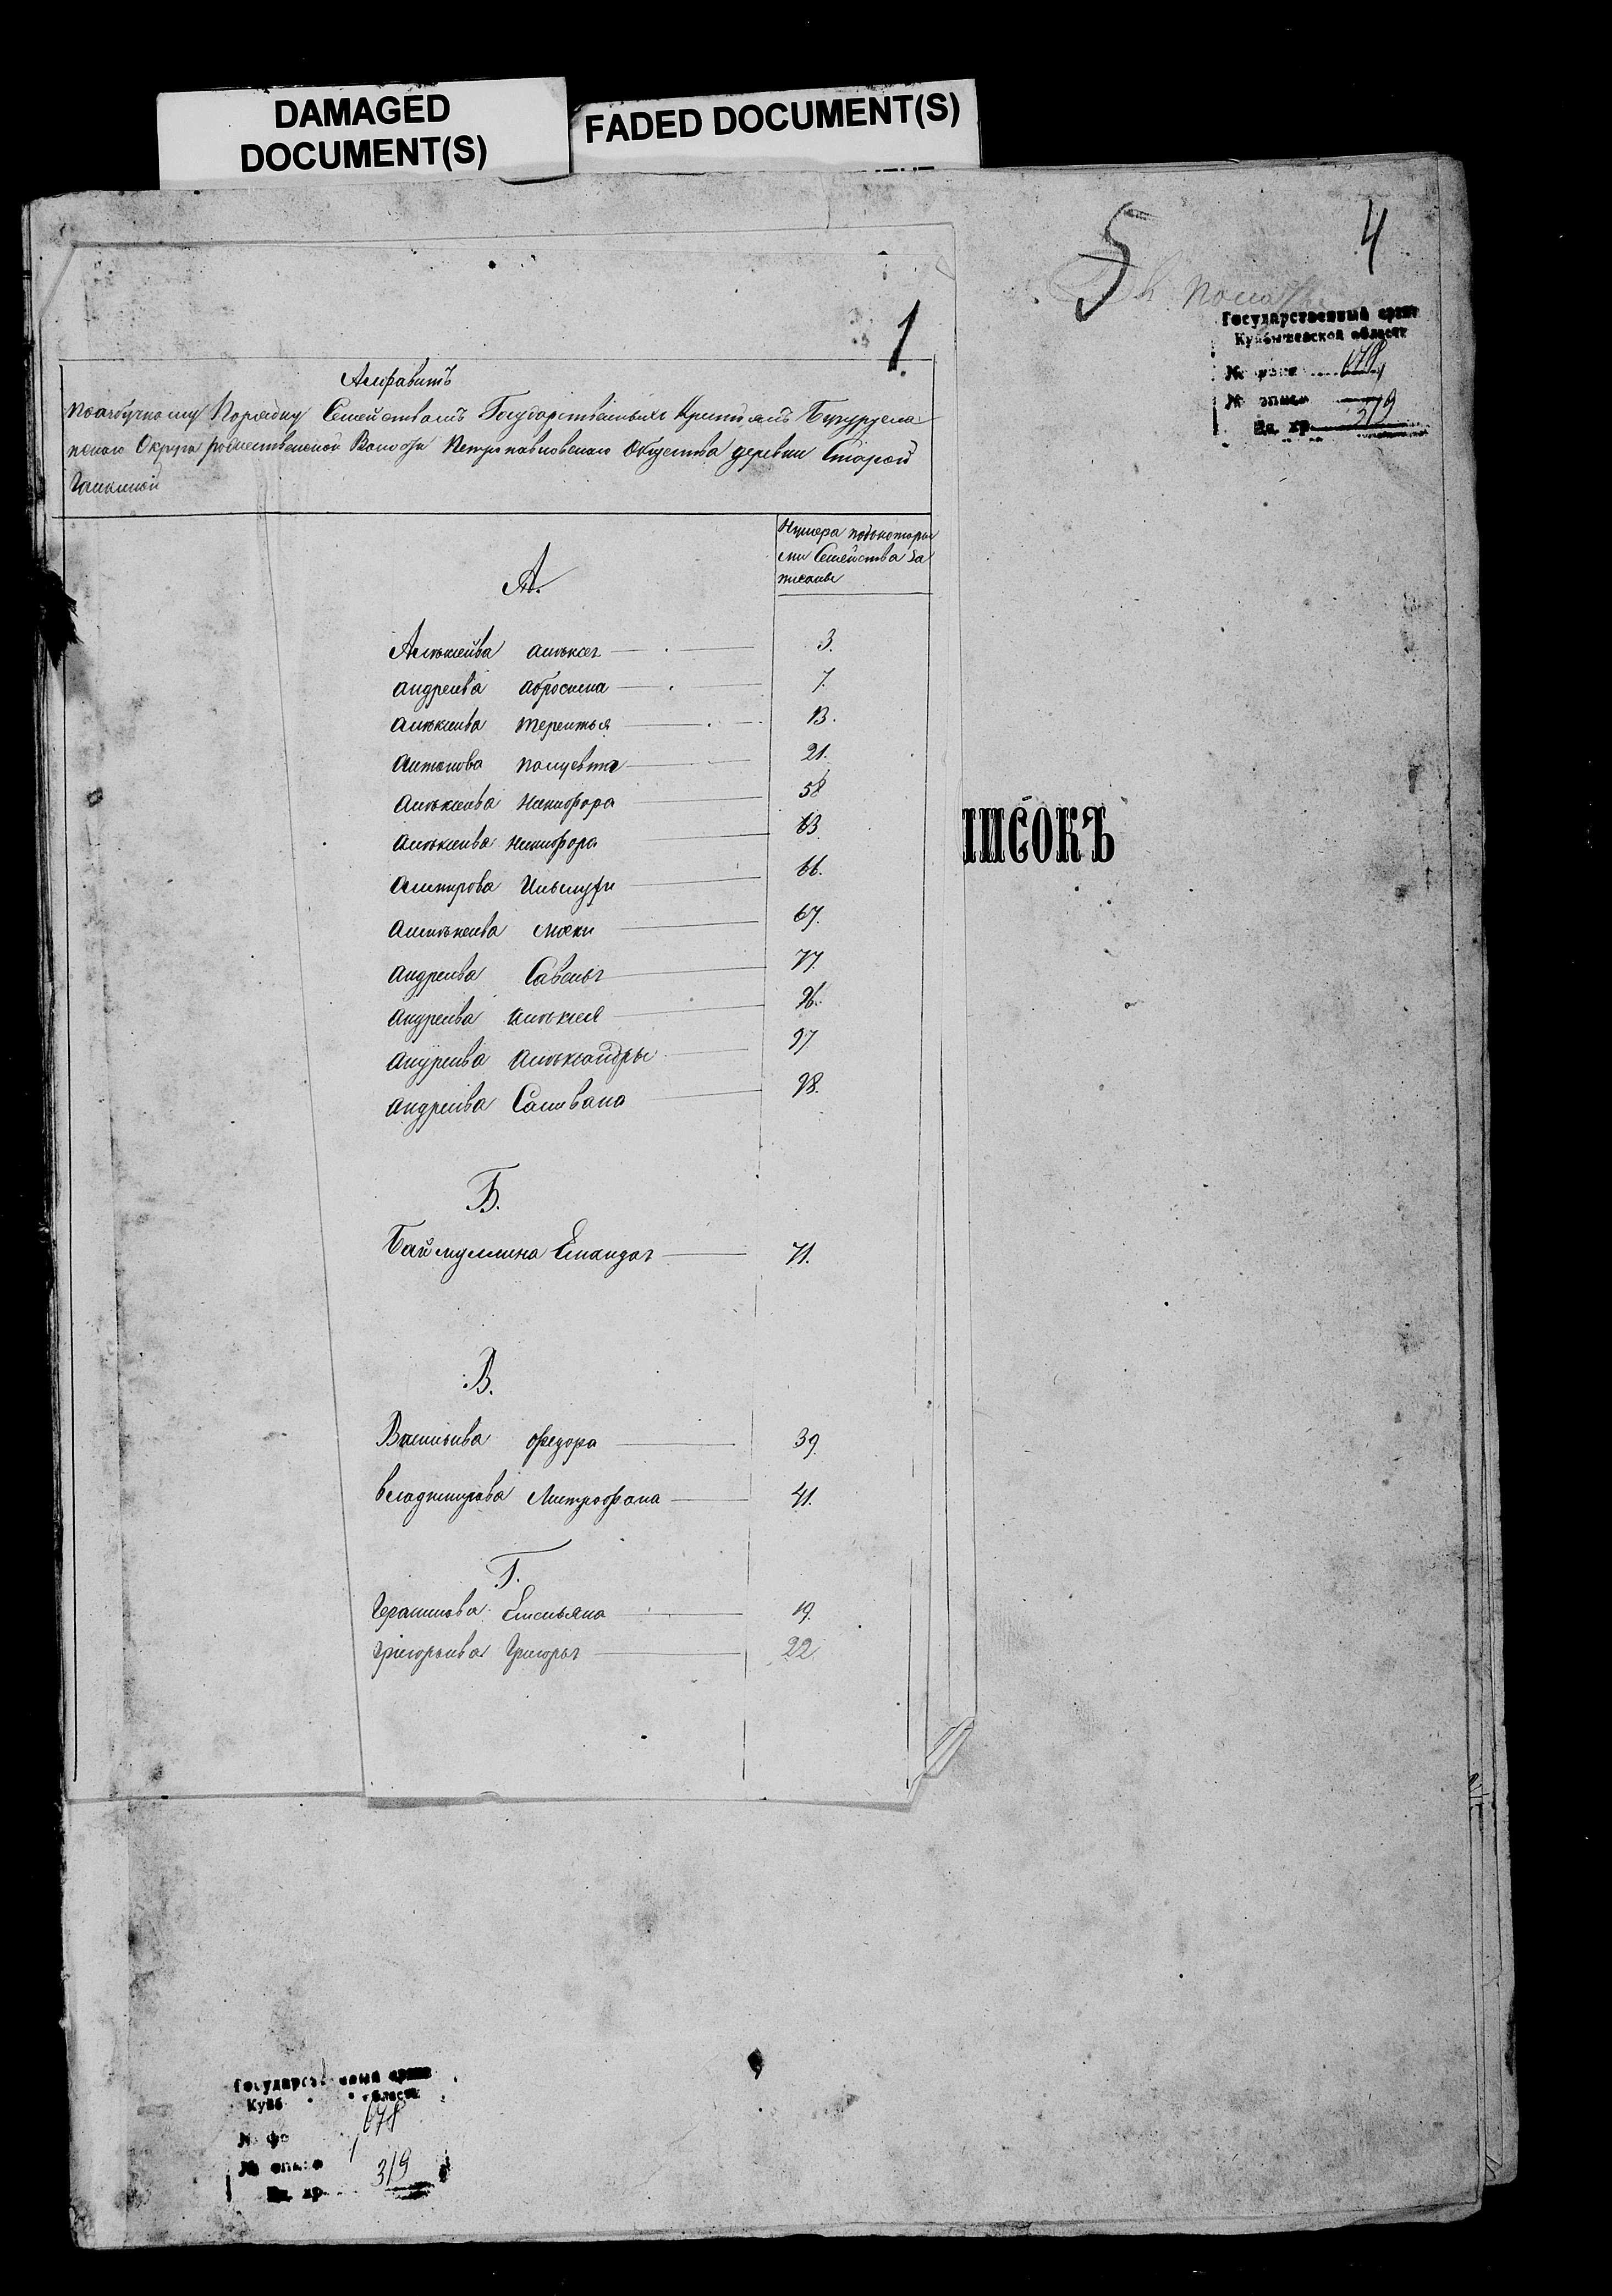 DAMAGED
DOCUMENT(S)
FADED DOCUMENT(S)
5
4
1
Государственный архив
Куйбышевской области
№ фонда 678
№ описи
Ед. хр. 319
Алфавитъ
поазбучному Порядку Семействамъ Государственныхъ Крестьянъ Бугурусла
нскаго Округа рождественской Волости Петропавловскаго Общества деревни Старой
Нумера подкоторы
ми Семейства за
писаны
А.
Алексеева алексея 3.
андреева абросима 7.
алексеева терентья 13.
антонова 21.
алексеева Никифора 58
алексеева никифора 63
66.
мокея 67.
андреева Савелья 77.
андреева алексея 96.
андреева александры 97
андреева Саливана 98.
Б.
Баймуллина 71.
В.
Васильева федора 39.
владимирова Митрофана 41.
Г.
Герасимова Емельяна 19.
григорьева Григорья 22
ПИСОКЪ
Государственный архив
Куйб области
№ фо 678
№ описи 1
Ед. хр. 319